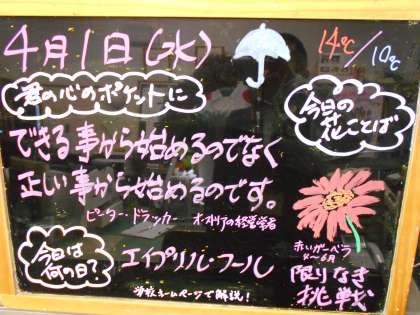 4月1日(水)
14℃/10℃
君の心のポケットに
できる事から始めるのでなく
正しい事から始めるのです。
ピーター・ドラッカー オーストリアの経営学者
今日の
花ことば
赤いガーベラ
4〜6月
限りなき
挑戦
今日は
何の日?
エイプリル・フール
学校ホームページで解説!